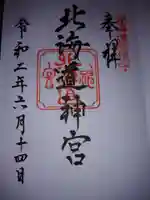 奉拝
北海道神宮
令和二年六月十四日